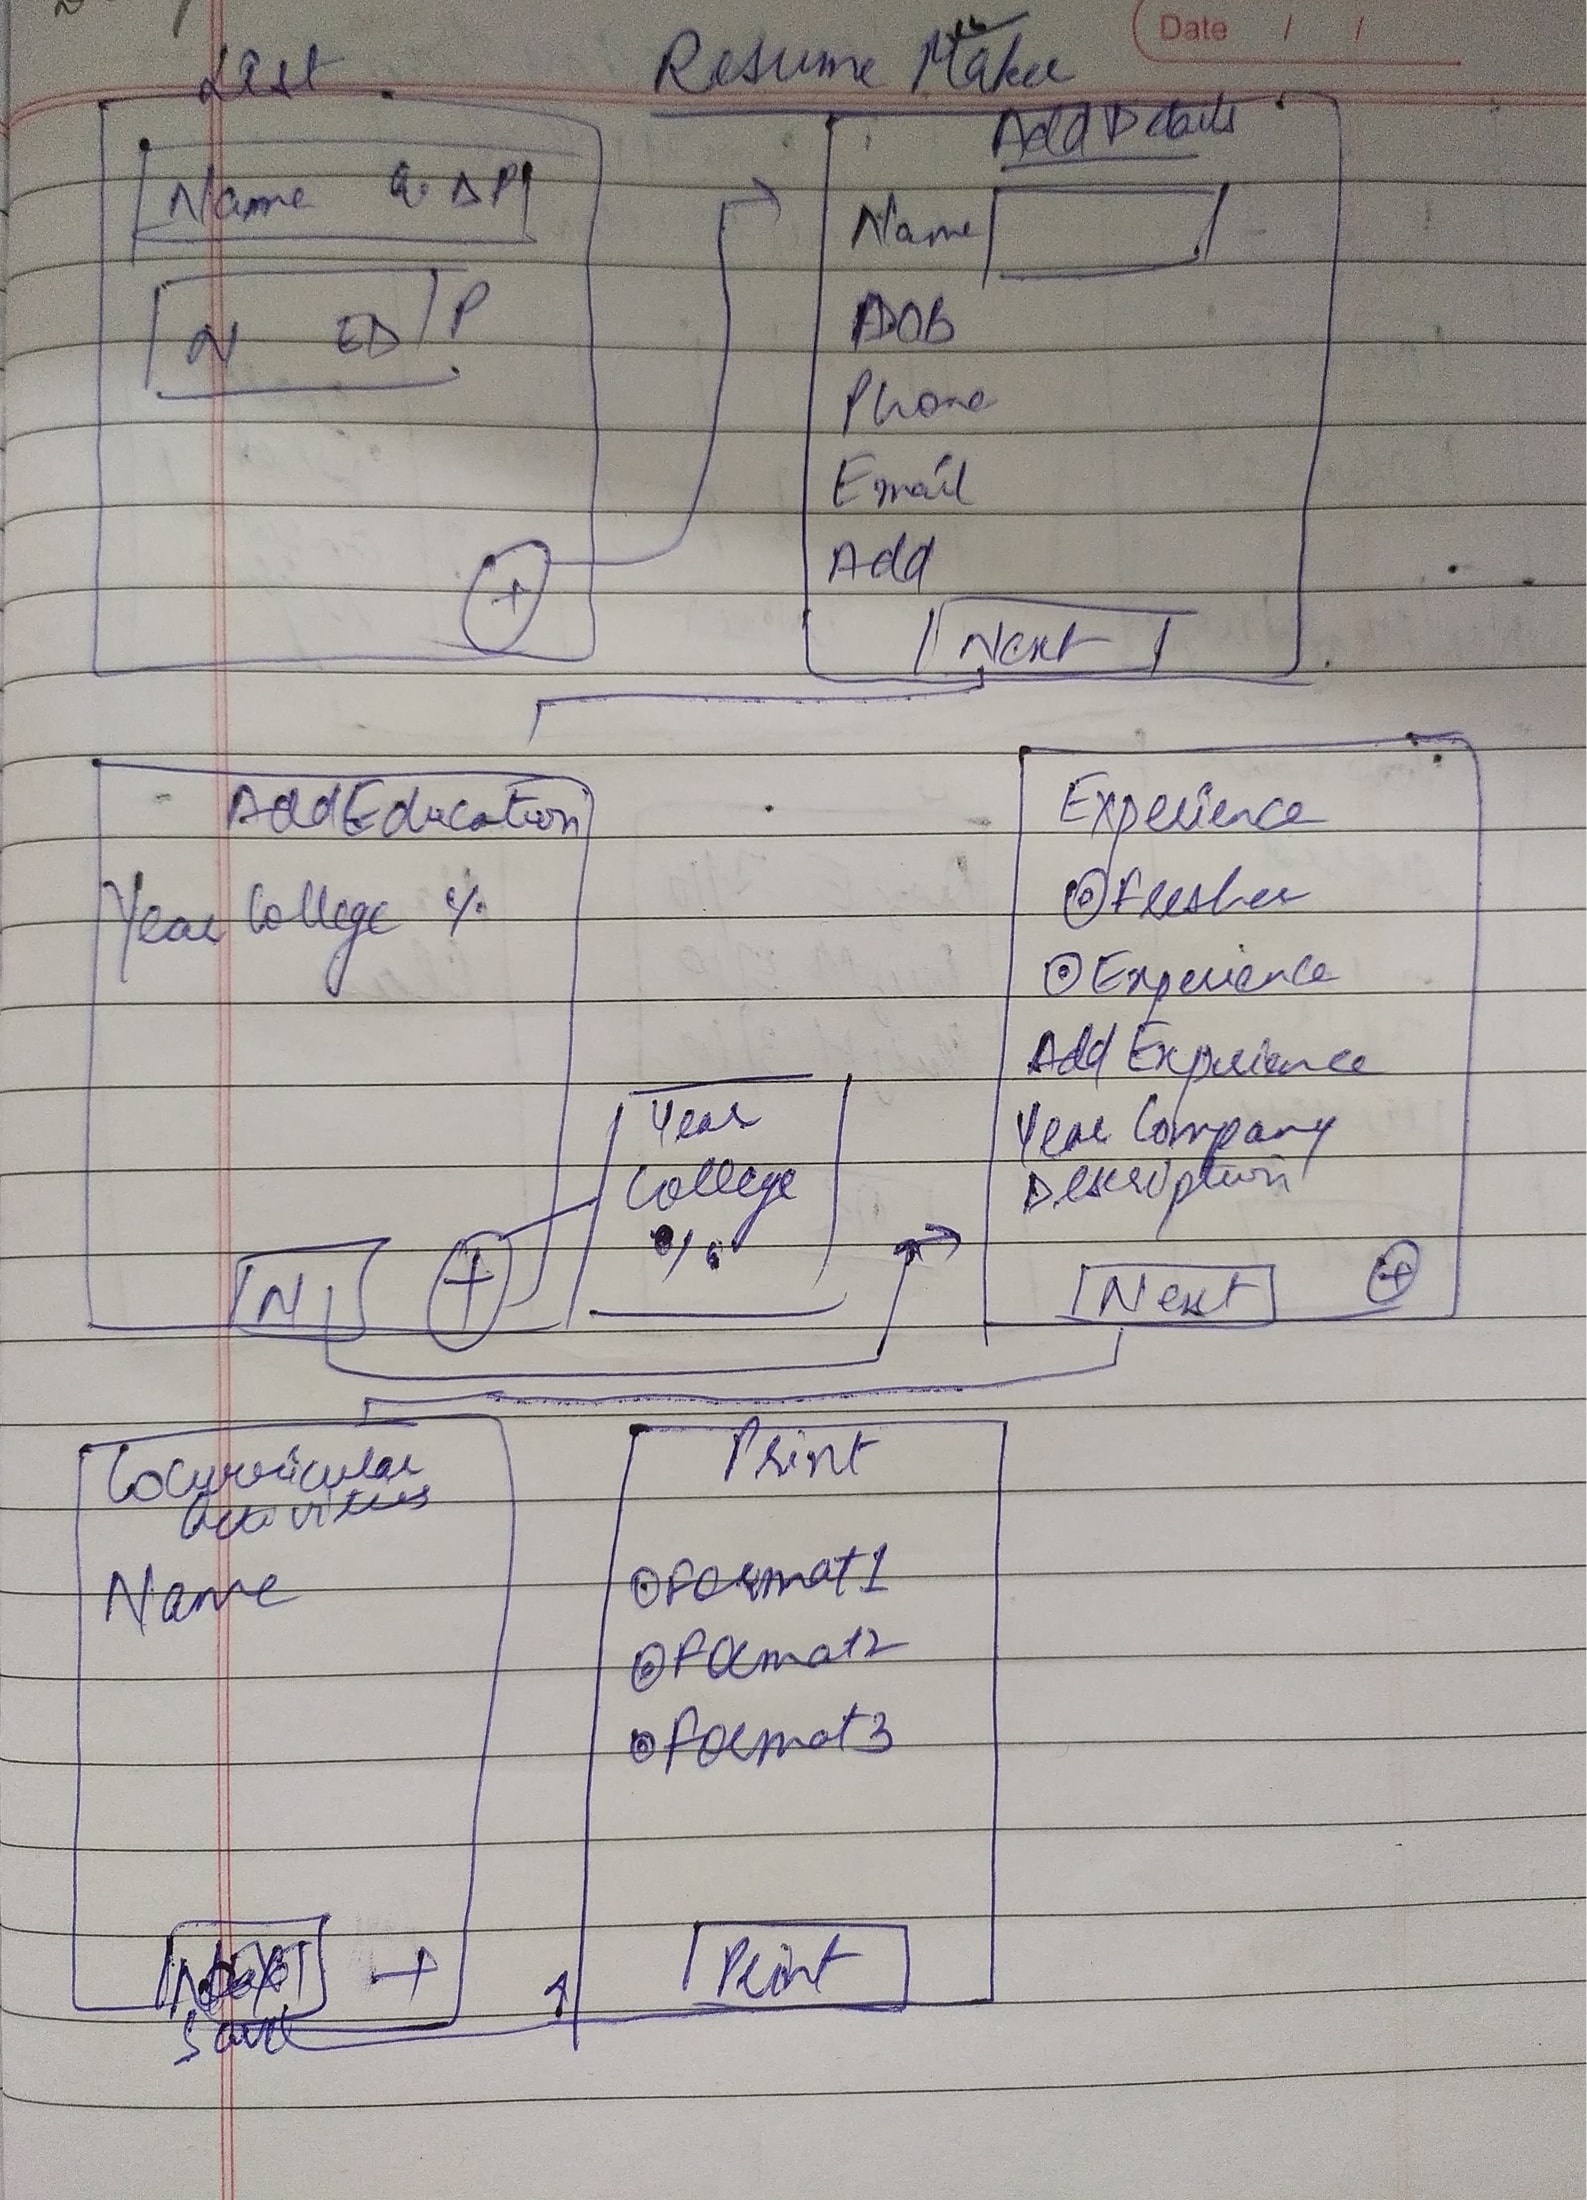 List
Resume Maker
Date / /
Name E D P
N E D P
+
Add Details
Name
DOB
Phone
Email
Add
Next
Add Education
Year College %
N +
Year
College
%
Experience
Fresher
Experience
Add Experience
Year Company
Description
Next +
Cocurricular
Activities
Name
Save
+
Print
Format1
Format2
Format3
Print